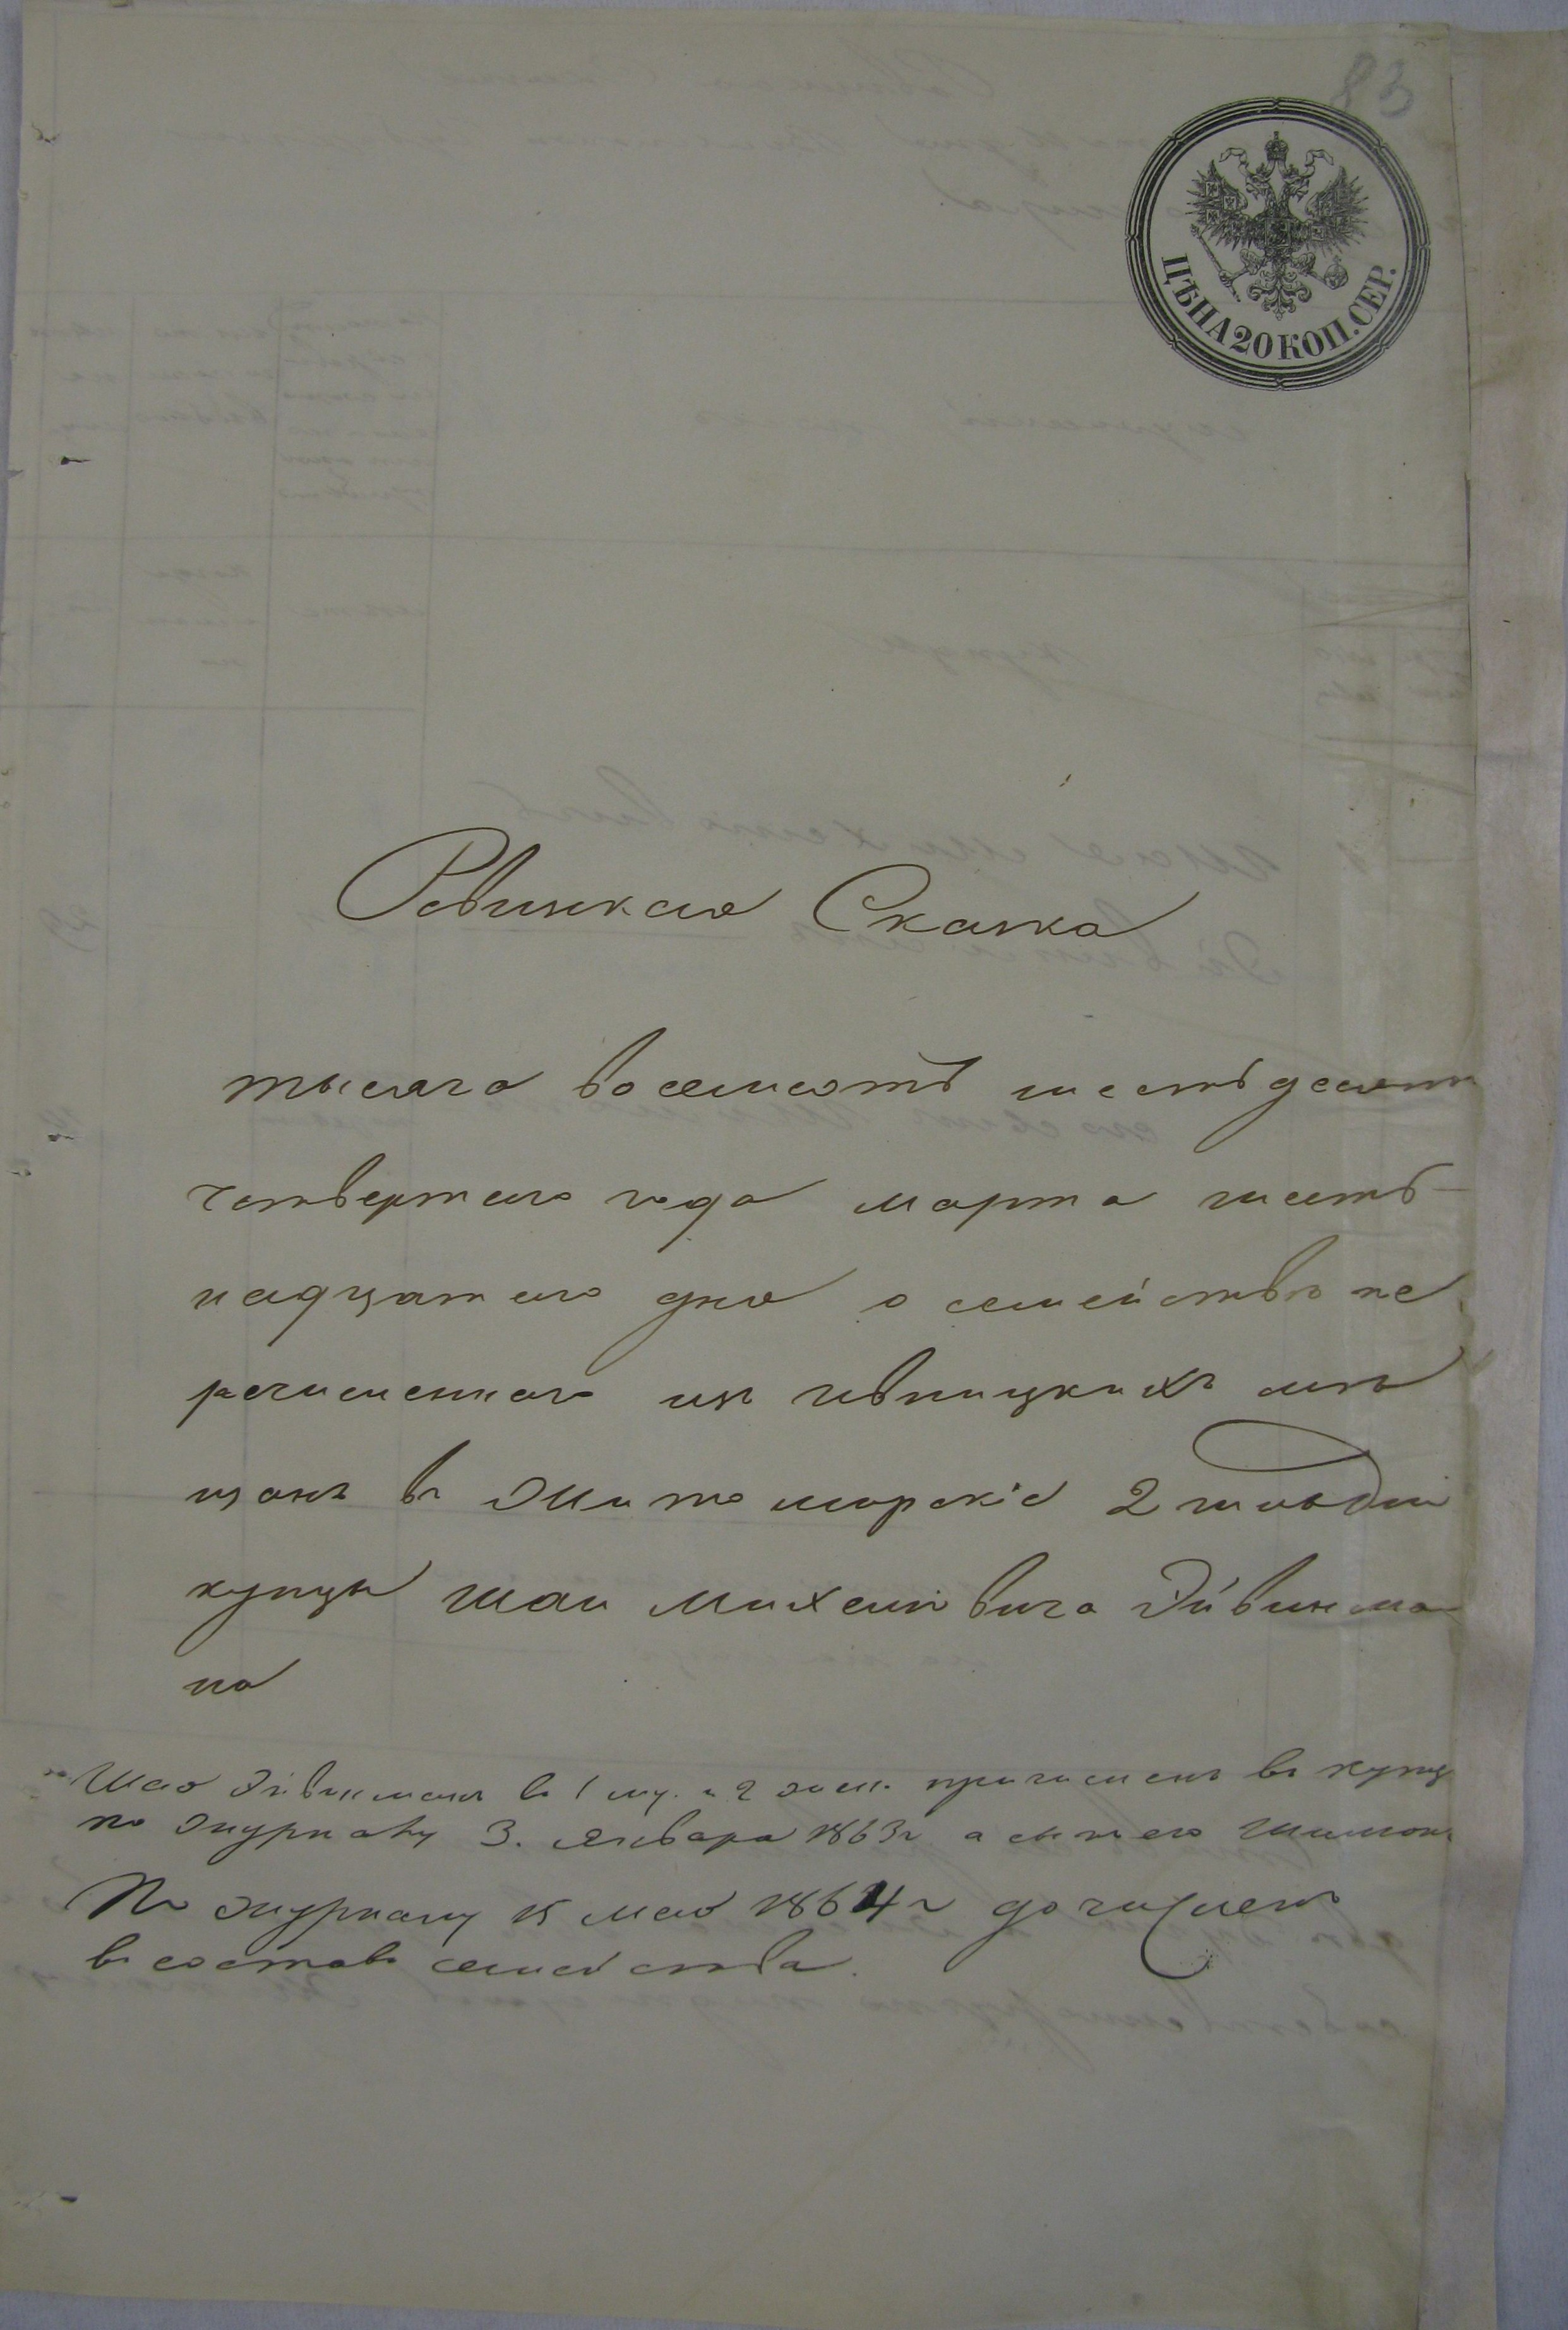 83
ЦѢНА 20 КОП. СЕР.
Ревизская Сказка
тысяча восемсотъ шестьдесятъ
четвертаго года марта шест-
надцатаго дня о семействѣ пе
речисленнаго изъ мѣ
щанъ въ Житомирскіе 2 гильдіи
купцы Шаи Михелевича Эйвинма
на
Шая Эйвинманъ въ 1 му. и 2 жен. причисленъ въ купц
по журналу 3. Января 1863г а сынъ его Шимонъ
По журналу 15 мая 1864 г дочисленъ
въ составъ семейства.